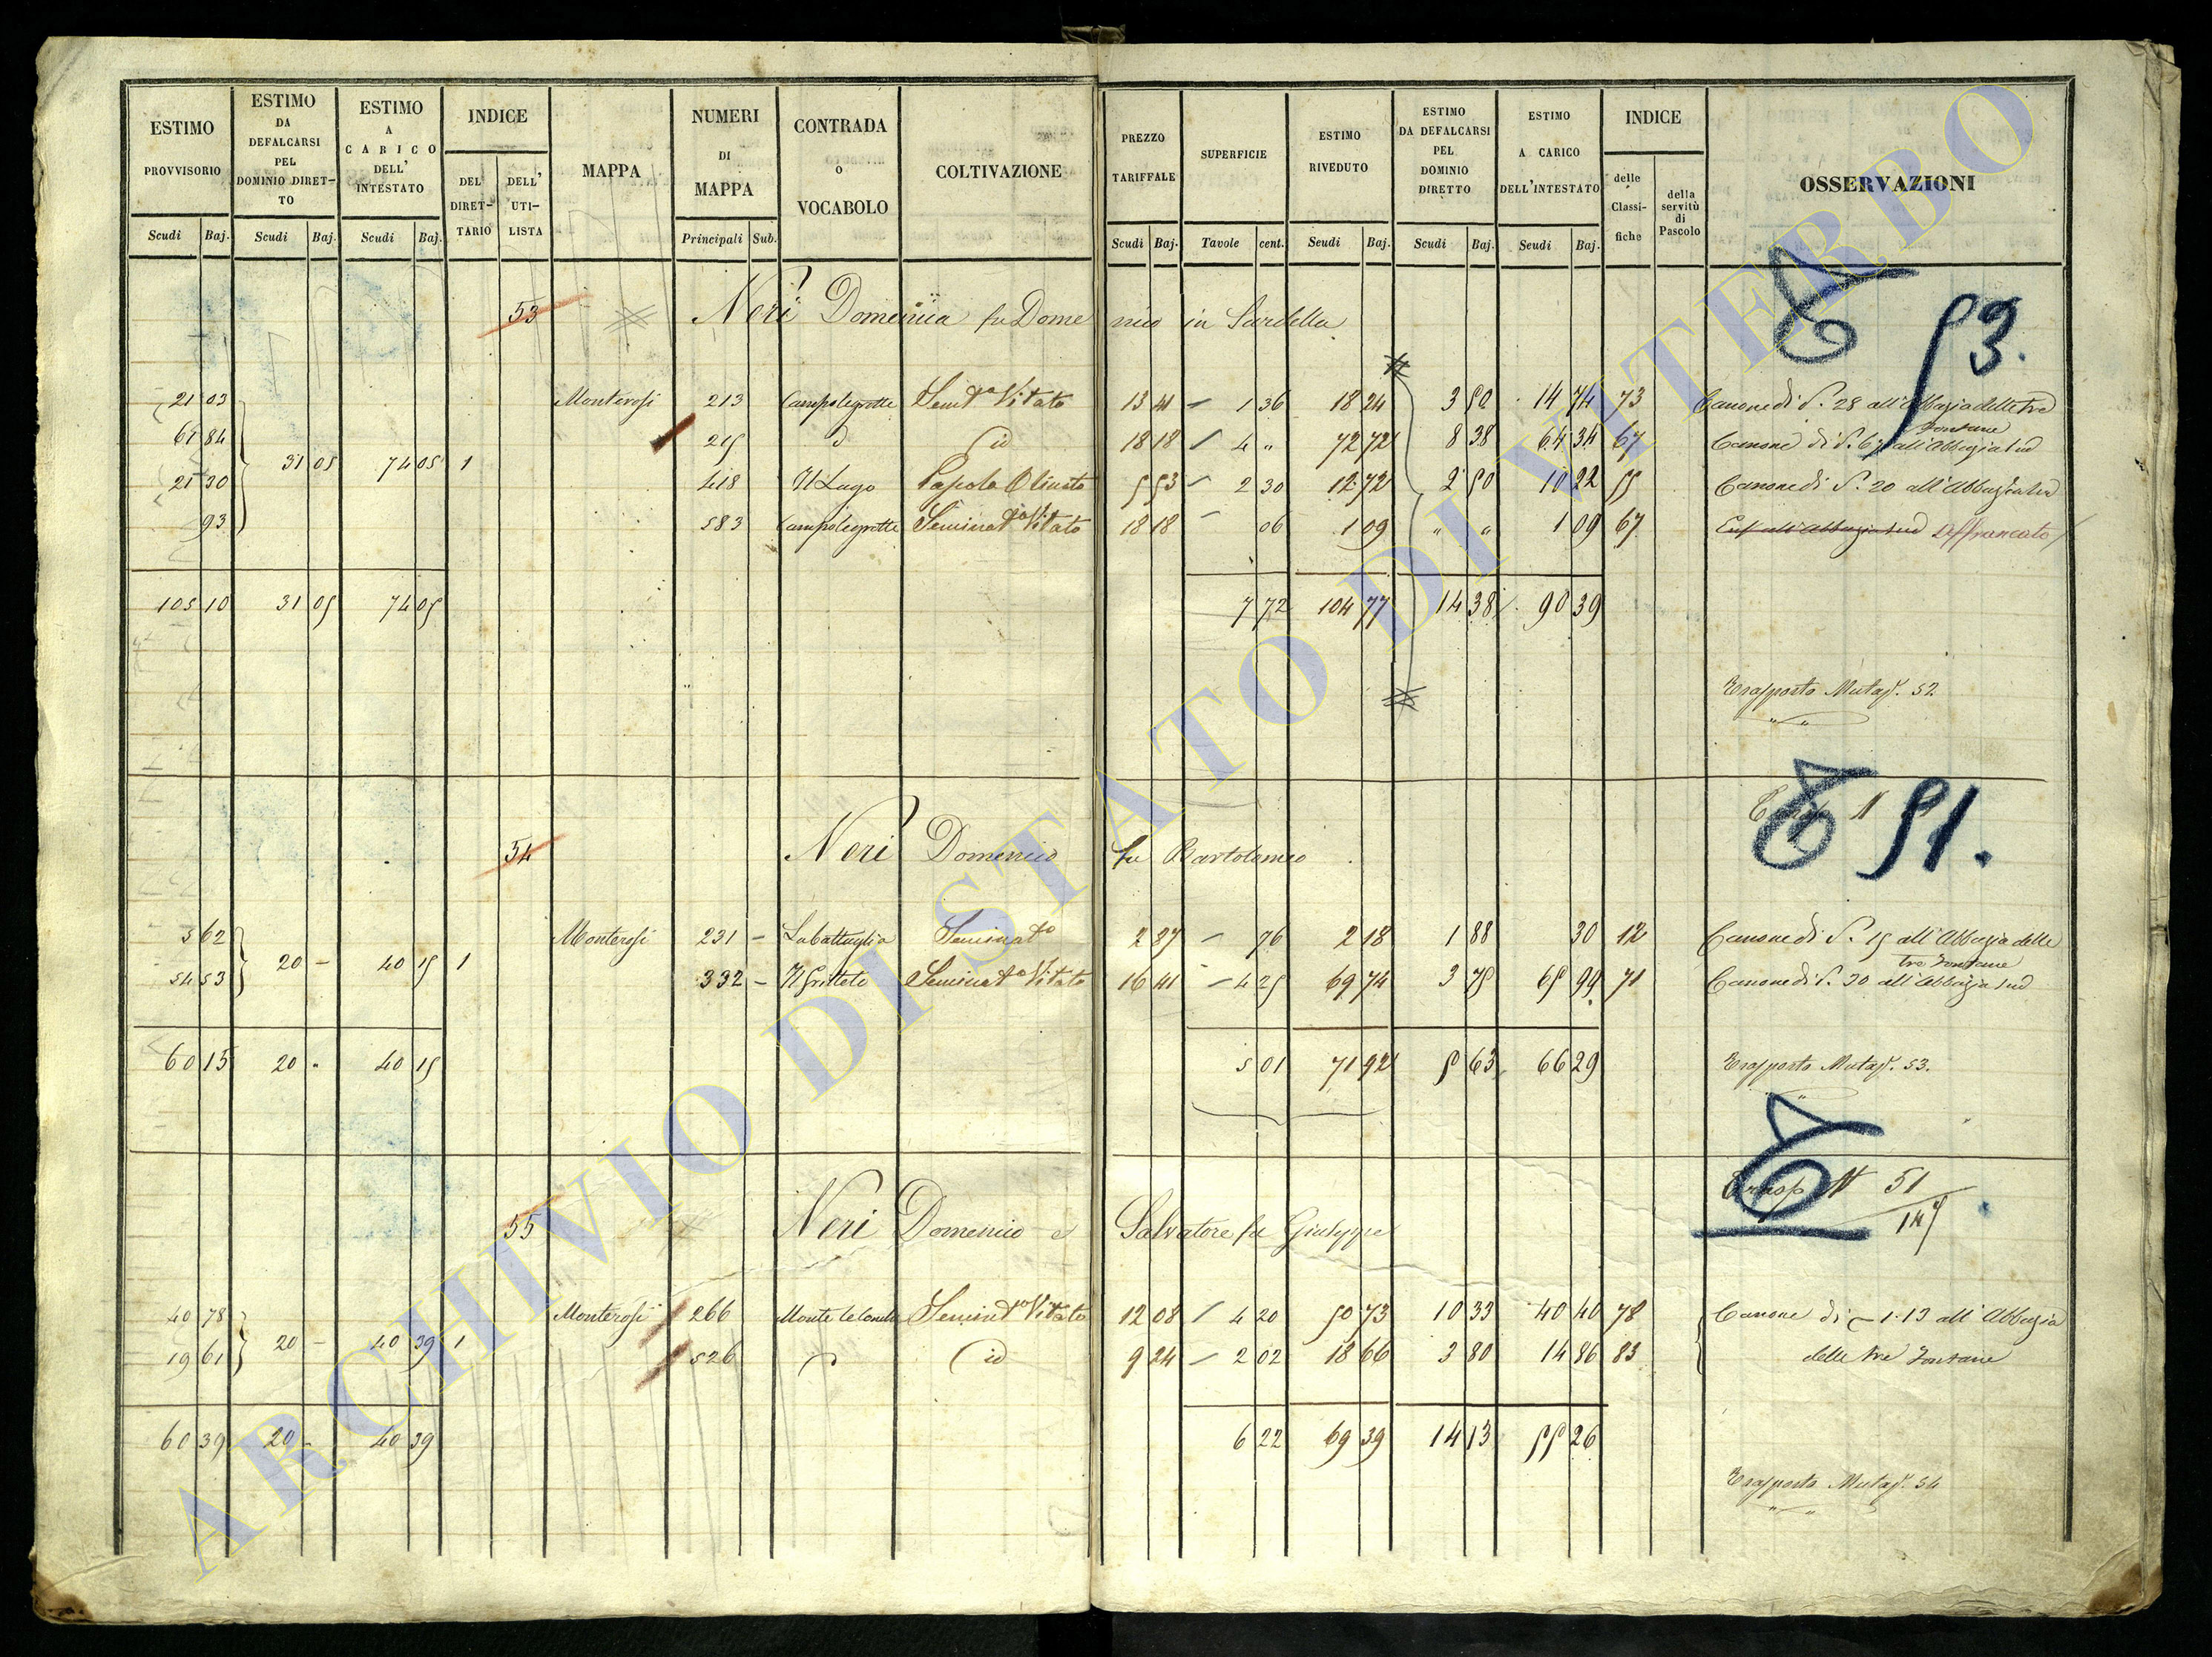 ESTIMO PROVVISORIO Scudi Baj.
ESTIMO DA DEFALCARSI PEL DOMINIO DIRET- TO Scudi Baj.
ESTIMO A CARICO DELL' INTESTATO Scudi Baj.
INDICE DEL DIRET- TARIO DELL' UTI- LISTA
MAPPA
NUMERI DI MAPPA Principali Sub.
CONTRADA O VOCABOLO
COLTIVAZIONE
PREZZO TARIFFALE Scudi Baj.
SUPERFICIE Tavole cent.
ESTIMO RIVEDUTO Scudi Baj.
ESTIMO DA DEFALCARSI PEL DOMINIO DIRETTO Scudi Baj.
ESTIMO A CARICO DELL'INTESTATO Scudi Baj.
INDICE delle Classi- fiche della servitù di Pascolo
OSSERVAZIONI
53 Neri Domenica fu Dome nico in Sardella
53.
21 03 Monterosi 213 Campolegrotte Semto Vitato 13 41 1 36 18 24 3 50 14 74 73 Canone di S. 28 all'Abbazia delle tre Fontane
61 84 215 id 18 18 4 " 72 72 8 38 64 34 67 Canone di S. 67 all'Abbazia sud
31 05 74 05 1
21 30 418 Il Lago Pascolo Olivato 5 53 2 30 12 72 2 50 10 22 55 Canone di S. 20 all'Abbazia sud
93 583 Campolegrotte Seminato Vitato 18 18 06 1 09 " " 1 09 67 Enf all'Abbazia sud Affrancato
105 10 31 05 74 05 7 72 104 77 14 38 90 39
Trasporto Mutaz. 52
54 Neri Domenico fu Bartolomeo
51.
5 62 Monterosi 231 - Labattaglia Seminato 2 87 - 76 2 18 1 88 30 12 Canone di S. 15 all'Abbazia delle tre Fontane
20 - 40 15 1
54 53 332 - Il Gritteto Seminato Vitato 16 41 - 4 25 69 74 3 75 65 99 71 Canone di S. 30 all'Abbazia sud
60 15 20 - 40 15 5 01 71 92 5 63 66 29 Trasporto Mutaz. 53.
Trasp N 51
145
55 Neri Domenico e Salvatore fu Giuseppe
40 78 Monterosi 266 Monte le Conche Seminto Vitato 12 08 4 20 50 73 10 33 40 40 78 Canone di 1.13 all'Abbazia
20 - 40 39 1
19 61 526 id 9 24 - 2 02 18 66 3 80 14 86 83 delle tre Fontane
60 39 20 - 40 39 6 22 69 39 14 13 55 26
Trasporto Mutaz. 54
ARCHIVIO DI STATO DI VITERBO